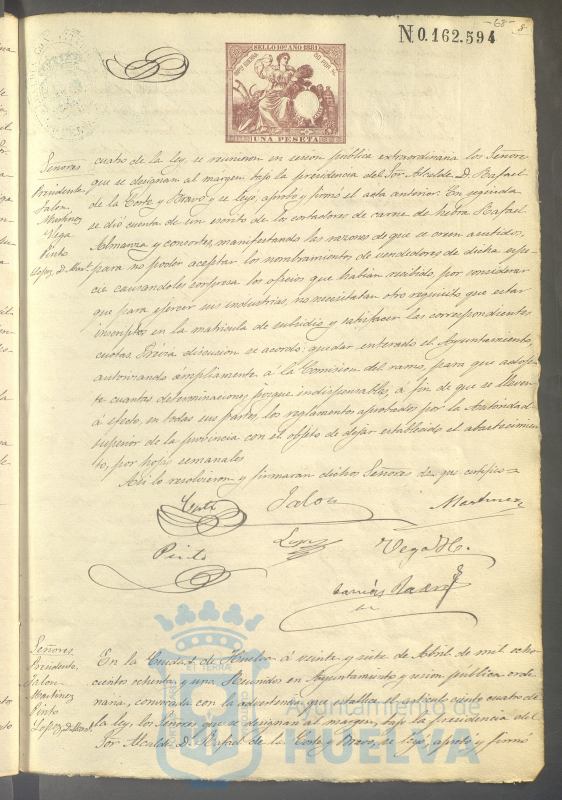 -68-
8
N.0.162.594
SELLO 10º AÑO 1881
UNA PESETA
Señores
Presidente
Jalon
Martinez
Vega
Pinto
Lopez, D. Mart.
cuatro de la ley, se reunieron en sesion pública extraordinaria los Señores
que se designan al margen bajo la presidencia del Sor. Alcalde D. Rafael
de la Corte y Bravo y se leyó, aprobó y firmó el acta anterior. En seguida
se dió cuenta de un escrito de los cortadores de carne de hebra Rafael
Almanza y consortes, manifestando las razones de que se creen asistidos,
para no poder aceptar los nombramientos de vendedores de dicha espe-
cie causandoles sorpresa los oficios que habian recibido, por considerar
que para ejercer sus industrias, no necesitaban otro requisito que estar
inscriptos en la matricula de subsidio y satisfacer las correspondientes
cuotas. Prévia discusion se acordó: quedar enterado el Ayuntamiento,
autorizando ámpliamente á la Comision del ramo, para que adop-
te cuantas determinaciones juzgue indispensables, á fin de que se lleven
á efecto, en todas sus partes, los reglamentos aprobados por la Autoridad
superior de la provincia con el objeto de dejar establecido el abastecimien-
to, por hojas semanales.
Asi lo resolvieron y firmaran dichos Señores de que certifico=
Corte
Jalon
Martinez
Pinto
Lopez
Vega
Señores
Presidente
Jalon
Martinez
Pinto
Lopez, D. Mart.
En la Ciudad de Huelva á veinte y siete de Abril de mil ocho-
cientos ochenta y uno. Reunidos en Ayuntamiento y sesion pública ordi-
naria, convocada con la advertencia que detalla el articulo ciento cuatro de
la ley, los Señores que se designan al margen, bajo la presidencia del
Sor. Alcalde D. Rafael de la Corte y Bravo, se leyó, aprobó y firmó
Ayuntamiento de
HUELVA